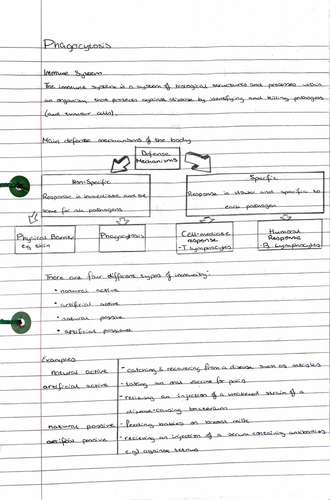 Phagocytosis
Immune System
The immune system is a system of biological structures and processes within
an organism that protects against disease by identifying and killing pathogens
(and tumour cells).
Main defense mechanisms of the body
Defense
Mechanisms
Non-Specific
Response is immediate and the
same for all pathogens
Specific
Response is slower and specific to
each pathogen
Physical Barrier
eg skin
Phagocytosis
Cell-mediate
response
-T lymphocytes
Humoral
Response
-B lymphocytes
There are four different types of immunity:
• natural active
• artificial active
• natural passive
• artificial passive
Examples
natural active - catching & recovering from a disease such as measles
artificial active - taking an oral vaccine for polio
- recieving an injection of a weakened strain of a
disease-causing bacterium
natural passive - feeding babies on breast milk
artificial passive - recieving an injection of a serum containing antibodies
e.g) against tetnus